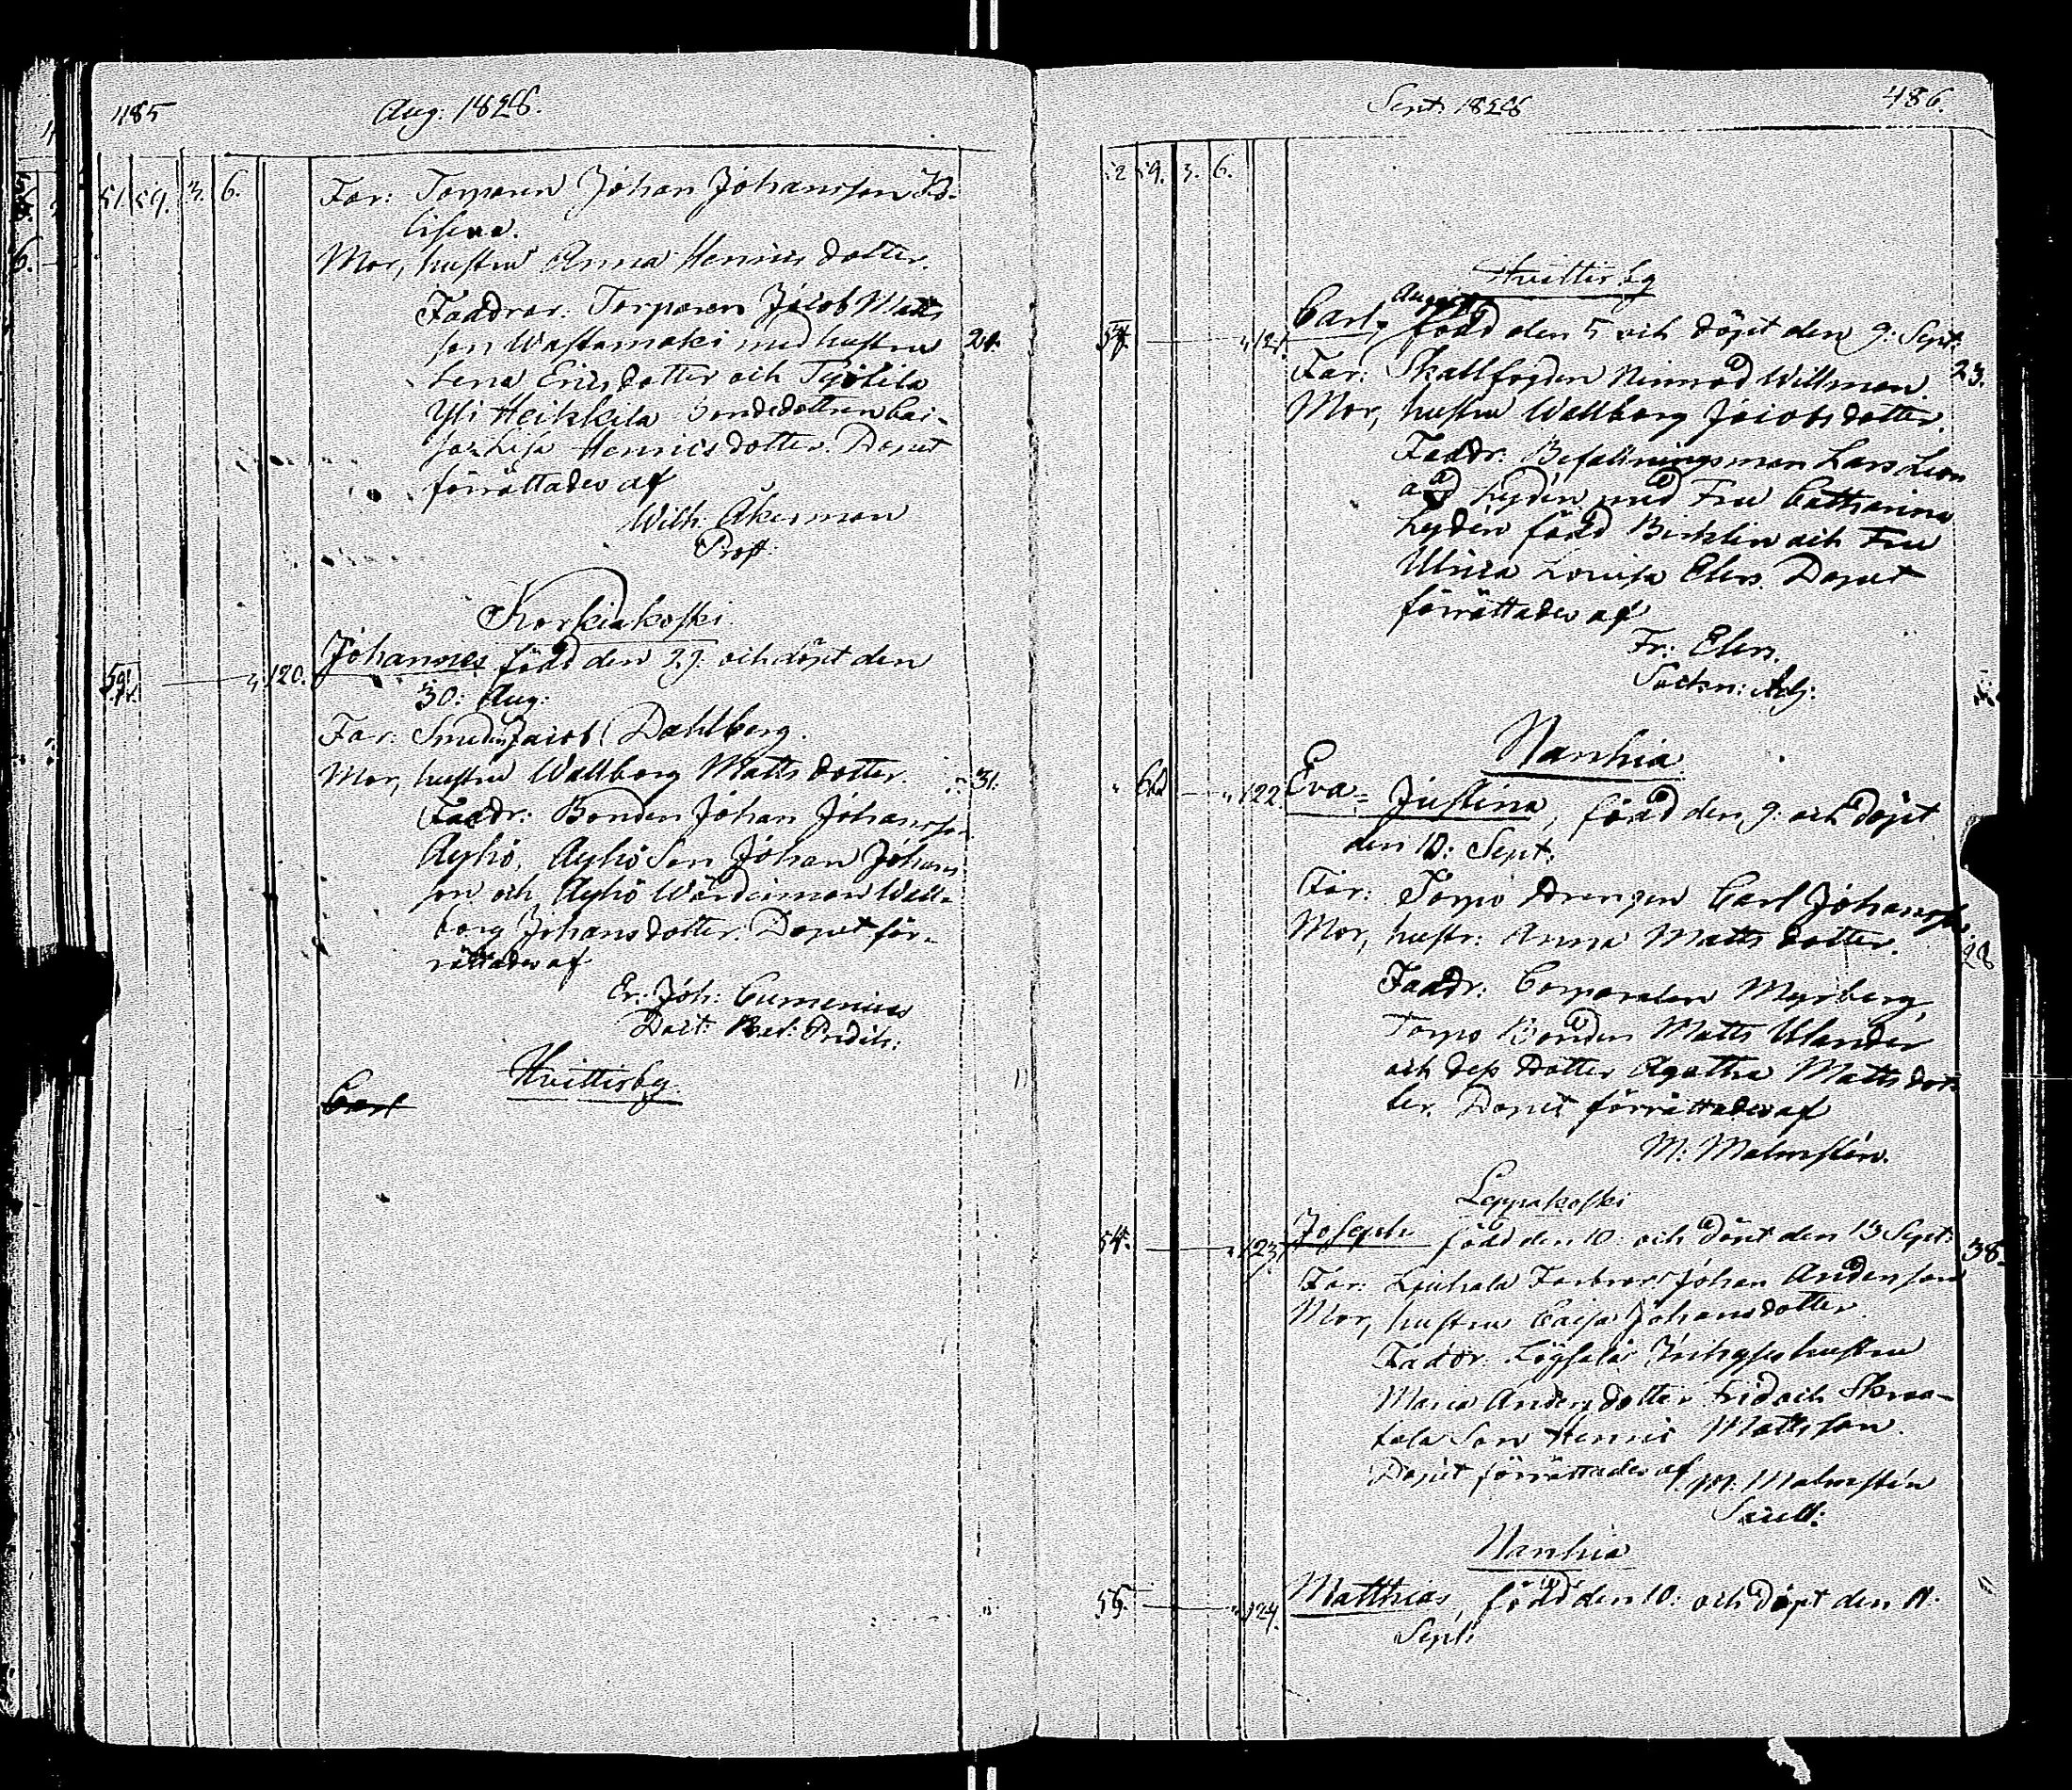 485
Aug: 1828.
51. 59. 3. 6.
Far: Torparen Johan Johansson
lisena.
Mor, hustru Anna Henricsdotter.
Faddrar: Torparen Jacob Matts
son Wastamaki med hustru 24.
Lena Ericsdotter och Työtila
Yli Heikkila Bondedottren Cai-
sa Lisa Henricsdotter. Dopet
förrättades af
Wilh: Åkerman
Prost.
Korkiakoski
120. Johannes född den 29. och döpt den
30: Aug:
Far: Smeden Jacob Dahlberg.
Mor, hustru Wallborg Mattsdotter. 31.
Faddr: Bonden Johan Johansson
Äyhö, Äyhö Son Johan Johans
son och Äyhö Wärdinnan Wall-
borg Johansdotter. Dopet för-
rättades af
Er: Joh: Cumenius
Hvittisby
Carl
Sept: 1828
486.
52 59. 3. 6.
Hvittisby
August
121. Carl, född den 5 och döpt den 9: Sept:
Far: Skallfogden Nimrod Willman. 23.
Mor, hustru Wallborg Jacobsdotter.
Faddr: Befallningsman Lars Leon
ard Lydén med Fru Catharina
Lydén född Birklin och Fru
Ulrica Lovisa Elers. Dopet
förrättades af
Fr: Elers.
Sockn: Adj:
Nanhia
122. Eva Justina, född den 9: och döpt
den 10: Sept:
Far: Torpo Drengen Carl Johansson
Mor, hustr: Anna Mattsdotter. 28
Faddr: Corporalen Myrberg,
Torpo Bonden Matts Ulander
och dess Dotter Agatha Mattsdot-
ter. Dopet förrättades af
M: Malmstén.
Leppäkoski
54. 123. Joseph född den 10: och döpt den 13 Sept: 38.
Far: Farbror Johan Andersson
Mor, hustru Caisa Johansdotter.
Faddr: hustru
Maria Andersdotter Frid och Skraa-
tala Son Henric Mattsson.
Dopet förrättades af M: Malmstén
Nanhia
55. 124. Matthias, född den 10: och döpt den 11.
Sept: